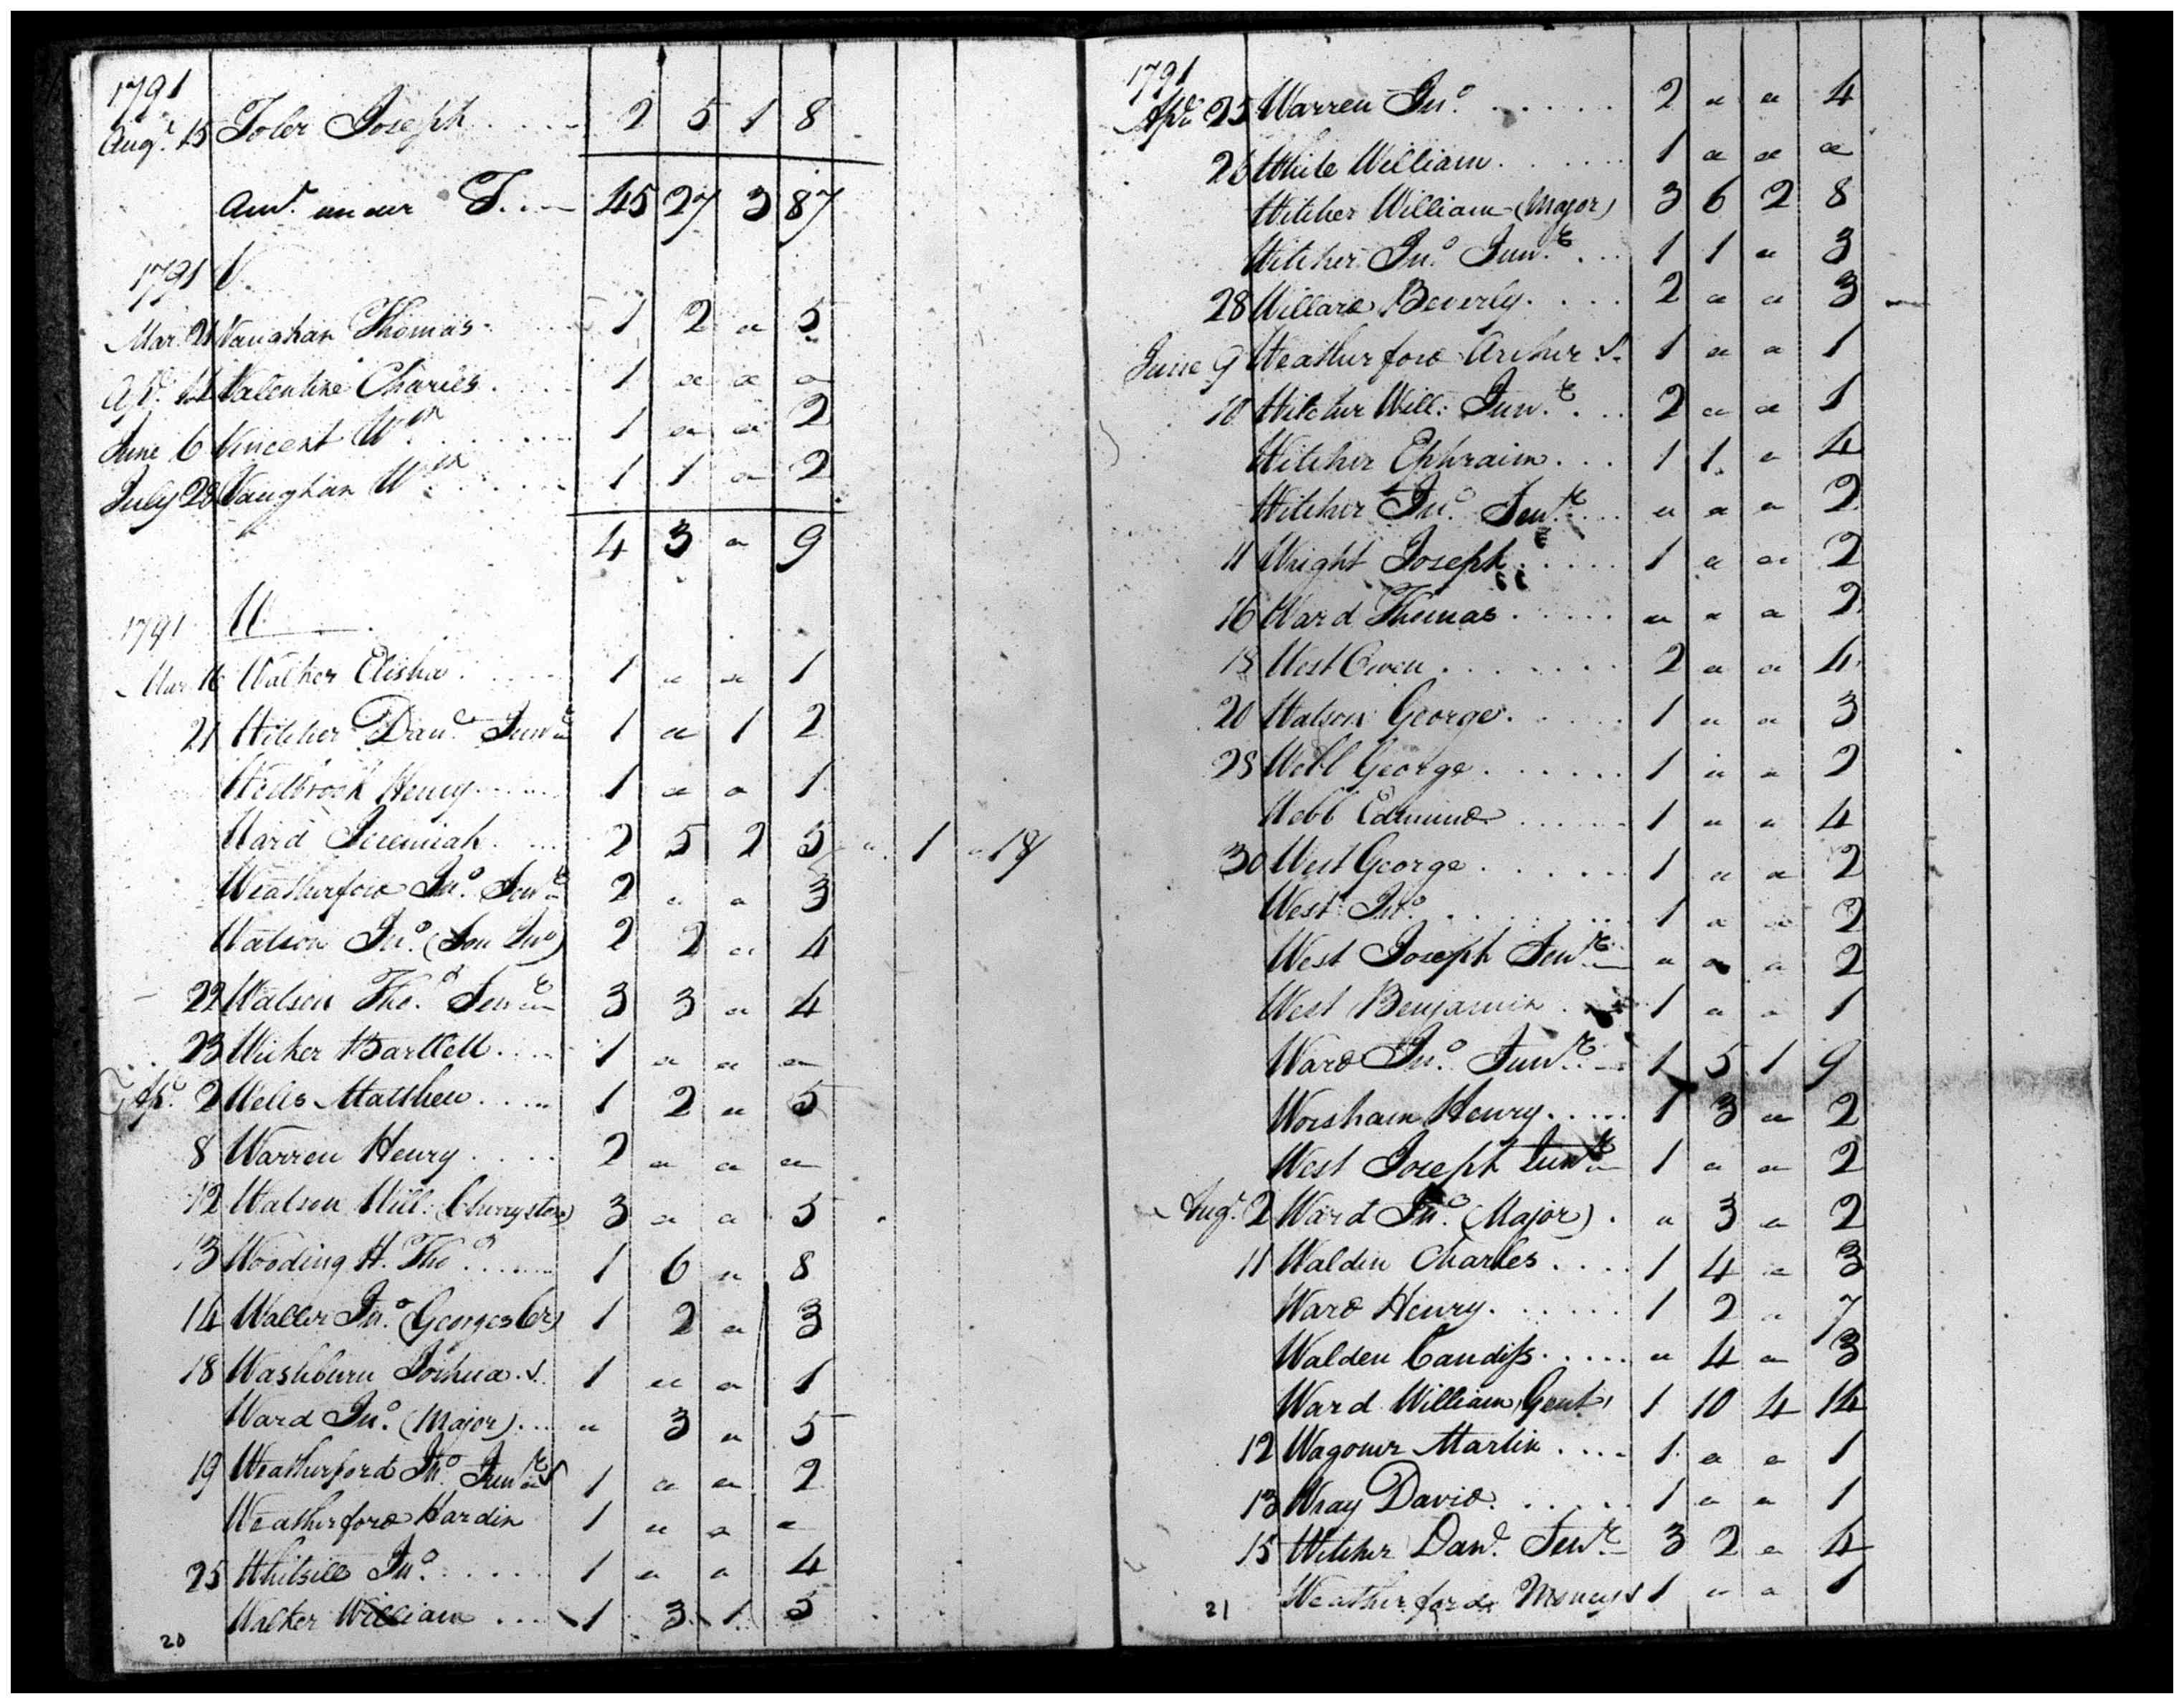 1791
Augt. 15 Toler Joseph 2 5 1 8
Amt. under T. 45 27 3 87
1791 V.
Mar. 21 Vaughan Thomas 1 2 " 5
Apl. Valentine Charles 1 " " "
June 6 Vincent Wm 1 " " 2
July 28 Vaughan Wm 1 1 " 2
4 3 " 9
1791 W
Mar. 16 Walker Elisha 1 " " 1
21 Witcher Danl. Junr 1 " 1 2
Henry 1 " " 1
Ward Jeremiah 2 5 2 5 " 1 "
Weatherford Jno. Senr 2 " " 3
Watson Jno. (Son Jno) 2 2 " 4
22 Watson Thos. Senr 3 3 " 4
23 Wicker Bartlett 1 " " "
Apl. 2 Wells Matthew 1 2 " 5
8 Warren Henry 2 " " "
12 Watson Will: (Cherrystone) 3 " " 5
13 Wooding H. Thos. 1 6 " 8
14 Waller Jno. (Georges Cr) 1 2 " 3
18 Washburn Joshua. S. 1 " " 1
Ward Jno. (Major) " 3 " 5
19 Weatherford Jno. Junr S 1 " " 2
Weatherford Hardin 1 " " "
25 Whitsill Jno. 1 " " 4
Walker William 1 3 1 5
20
1791
Apl. 25 Warren Jno. 2 " " 4
26 White William 1 " " "
Witcher William (Major) 3 6 2 8
Witcher Jno. Junr. 1 1 " 3
28 Willard Beverly 2 " " 3
June 9 Weatherford Archer S. 1 " " 1
10 Witcher Will: Junr. 2 " " 1
Witcher Ephraim 1 1 " 4
Witcher Jno. Senr. " " " 2
11 Wright Joseph 1 " " 2
16 Ward Thomas " " " 2
18 West Owen 2 " " 4
20 Watson George 1 " " 3
28 Webb George 1 " " 2
Webb Edmund 1 " " 4
30 West George 1 " " 2
West Jno. 1 " " 2
West Joseph Senr. " " " 2
West Benjamin 1 " " 1
Ward Jno. Junr. 1 5 1 9
Worsham Henry 1 3 " 2
West Joseph Junr 1 " " 2
Augt. 2 Ward Jno. (Major) " 3 " 2
11 Walden Charles 1 4 " 3
Ward Henry 1 2 " 7
Walden Candiss " 4 " 3
Ward William, Gent, 1 10 4 14
12 Wagoner Martin 1 " " 1
13 Wray David 1 " " 1
15 Witcher Danl. Senr. 3 2 " 4
Weatherford S 1 " " 1
21